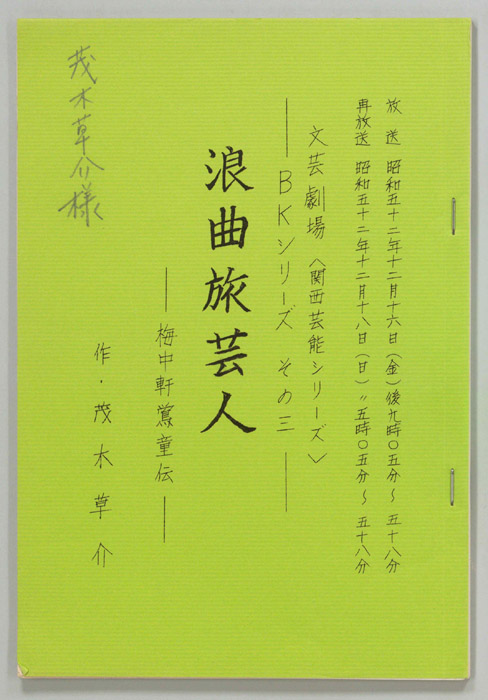 放送 昭和五十二年十二月十六日(金)後九時〇五分〜五十八分
再放送 昭和五十二年十二月十八日(日)〃五時〇五分〜五十八分
文芸劇場〈関西芸能シリーズ〉
――BKシリーズ その三――
浪曲旅芸人
――梅中軒鶯童伝――
作・茂木草介
茂木草介様